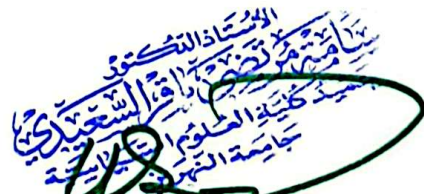 الأستاذ الدكتور
باقر السعيدي
عميد كلية العلوم السياسية
جامعة النهرين